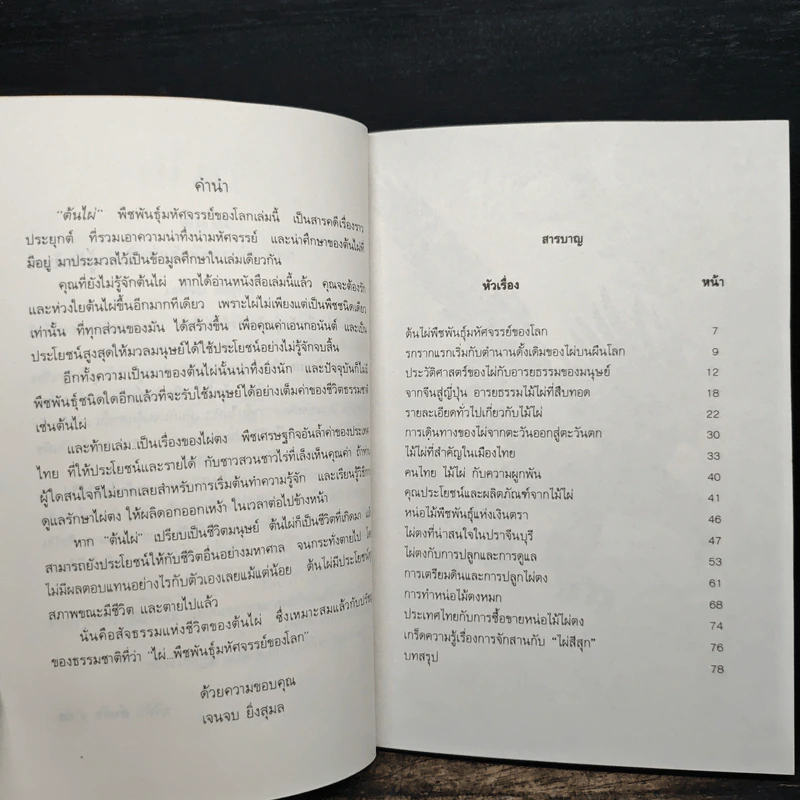 คำนำ
"ต้นไผ่" พืชพันธุ์มหัศจรรย์ของโลกเล่มนี้ เป็นสารคดีเรื่องราว
ประยุกต์ ที่รวมเอาความน่าทึ่งน่ามหัศจรรย์ และน่าศึกษาของต้นไผ่ที่
มีอยู่ มาประมวลไว้เป็นข้อมูลศึกษาในเล่มเดียวกัน
คุณที่ยังไม่รู้จักต้นไผ่ หากได้อ่านหนังสือเล่มนี้แล้ว คุณจะต้องรัก
และห่วงใยต้นไผ่ขึ้นอีกมากทีเดียว เพราะไผ่ไม่เพียงแต่เป็นพืชชนิดเดียว
เท่านั้น ที่ทุกส่วนของมัน ได้สร้างขึ้น เพื่อคุณค่าเอนกอนันต์ และเป็น
ประโยชน์สูงสุดให้มวลมนุษย์ได้ใช้ประโยชน์อย่างไม่รู้จักจบสิ้น
อีกทั้งความเป็นมาของต้นไผ่นั้นน่าทึ่งยิ่งนัก และปัจจุบันก็ไม่มี
พืชพันธุ์ชนิดใดอีกแล้วที่จะรับใช้มนุษย์ได้อย่างเต็มค่าของชีวิตธรรมชาติ
เช่นต้นไผ่
และท้ายเล่ม..เป็นเรื่องของไผ่ตง พืชเศรษฐกิจอันล้ำค่าของประเทศ
ไทย ที่ให้ประโยชน์และรายได้ กับชาวสวนชาวไร่ที่เล็งเห็นคุณค่า ถ้าท่าน
ผู้ใดสนใจก็ไม่ยากเลยสำหรับการเริ่มต้นทำความรู้จัก และเรียนรู้วิธีการ
ดูแลรักษาไผ่ตง ให้ผลิดอกออกเหง้า ในเวลาต่อไปข้างหน้า
หาก "ต้นไผ่" เปรียบเป็นชีวิตมนุษย์ ต้นไผ่ก็เป็นชีวิตที่เกิดมา แล้ว
สามารถยังประโยชน์ให้กับชีวิตอื่นอย่างมหาศาล จนกระทั่งตายไป โดย
ไม่มีผลตอบแทนอย่างไรกับตัวเองเลยแม้แต่น้อย ต้นไผ่มีประโยชน์
สภาพขณะมีชีวิต และตายไปแล้ว
นั่นคือสัจธรรมแห่งชีวิตของต้นไผ่ ซึ่งเหมาะสมแล้วกับปรัชญา
ของธรรมชาติที่ว่า "ไผ่...พืชพันธุ์มหัศจรรย์ของโลก"
ด้วยความขอบคุณ
เจนจบ ยิ่งสุมล
สารบาญ
หัวเรื่อง หน้า
ต้นไผ่พืชพันธุ์มหัศจรรย์ของโลก 7
รกรากแรกเริ่มกับตำนานดั้งเดิมของไผ่บนผืนโลก 9
ประวัติศาสตร์ของไผ่กับอารยธรรมของมนุษย์ 12
จากจีนสู่ญี่ปุ่น อารยธรรมไม้ไผ่ที่สืบทอด 18
รายละเอียดทั่วไปเกี่ยวกับไม้ไผ่ 22
การเดินทางของไผ่จากตะวันออกสู่ตะวันตก 30
ไม้ไผ่ที่สำคัญในเมืองไทย 33
คนไทย ไม้ไผ่ กับความผูกพัน 40
คุณประโยชน์และผลิตภัณฑ์จากไม้ไผ่ 41
หน่อไม้พืชพันธุ์แห่งเงินตรา 46
ไผ่ตงที่น่าสนใจในปราจีนบุรี 47
ไผ่ตงกับการปลูกและการดูแล 53
การเตรียมดินและการปลูกไผ่ตง 61
การทำหน่อไม้ตงหมก 68
ประเทศไทยกับการซื้อขายหน่อไม้ไผ่ตง 74
เกร็ดความรู้เรื่องการจักสานกับ "ไผ่สีสุก" 76
บทสรุป 78